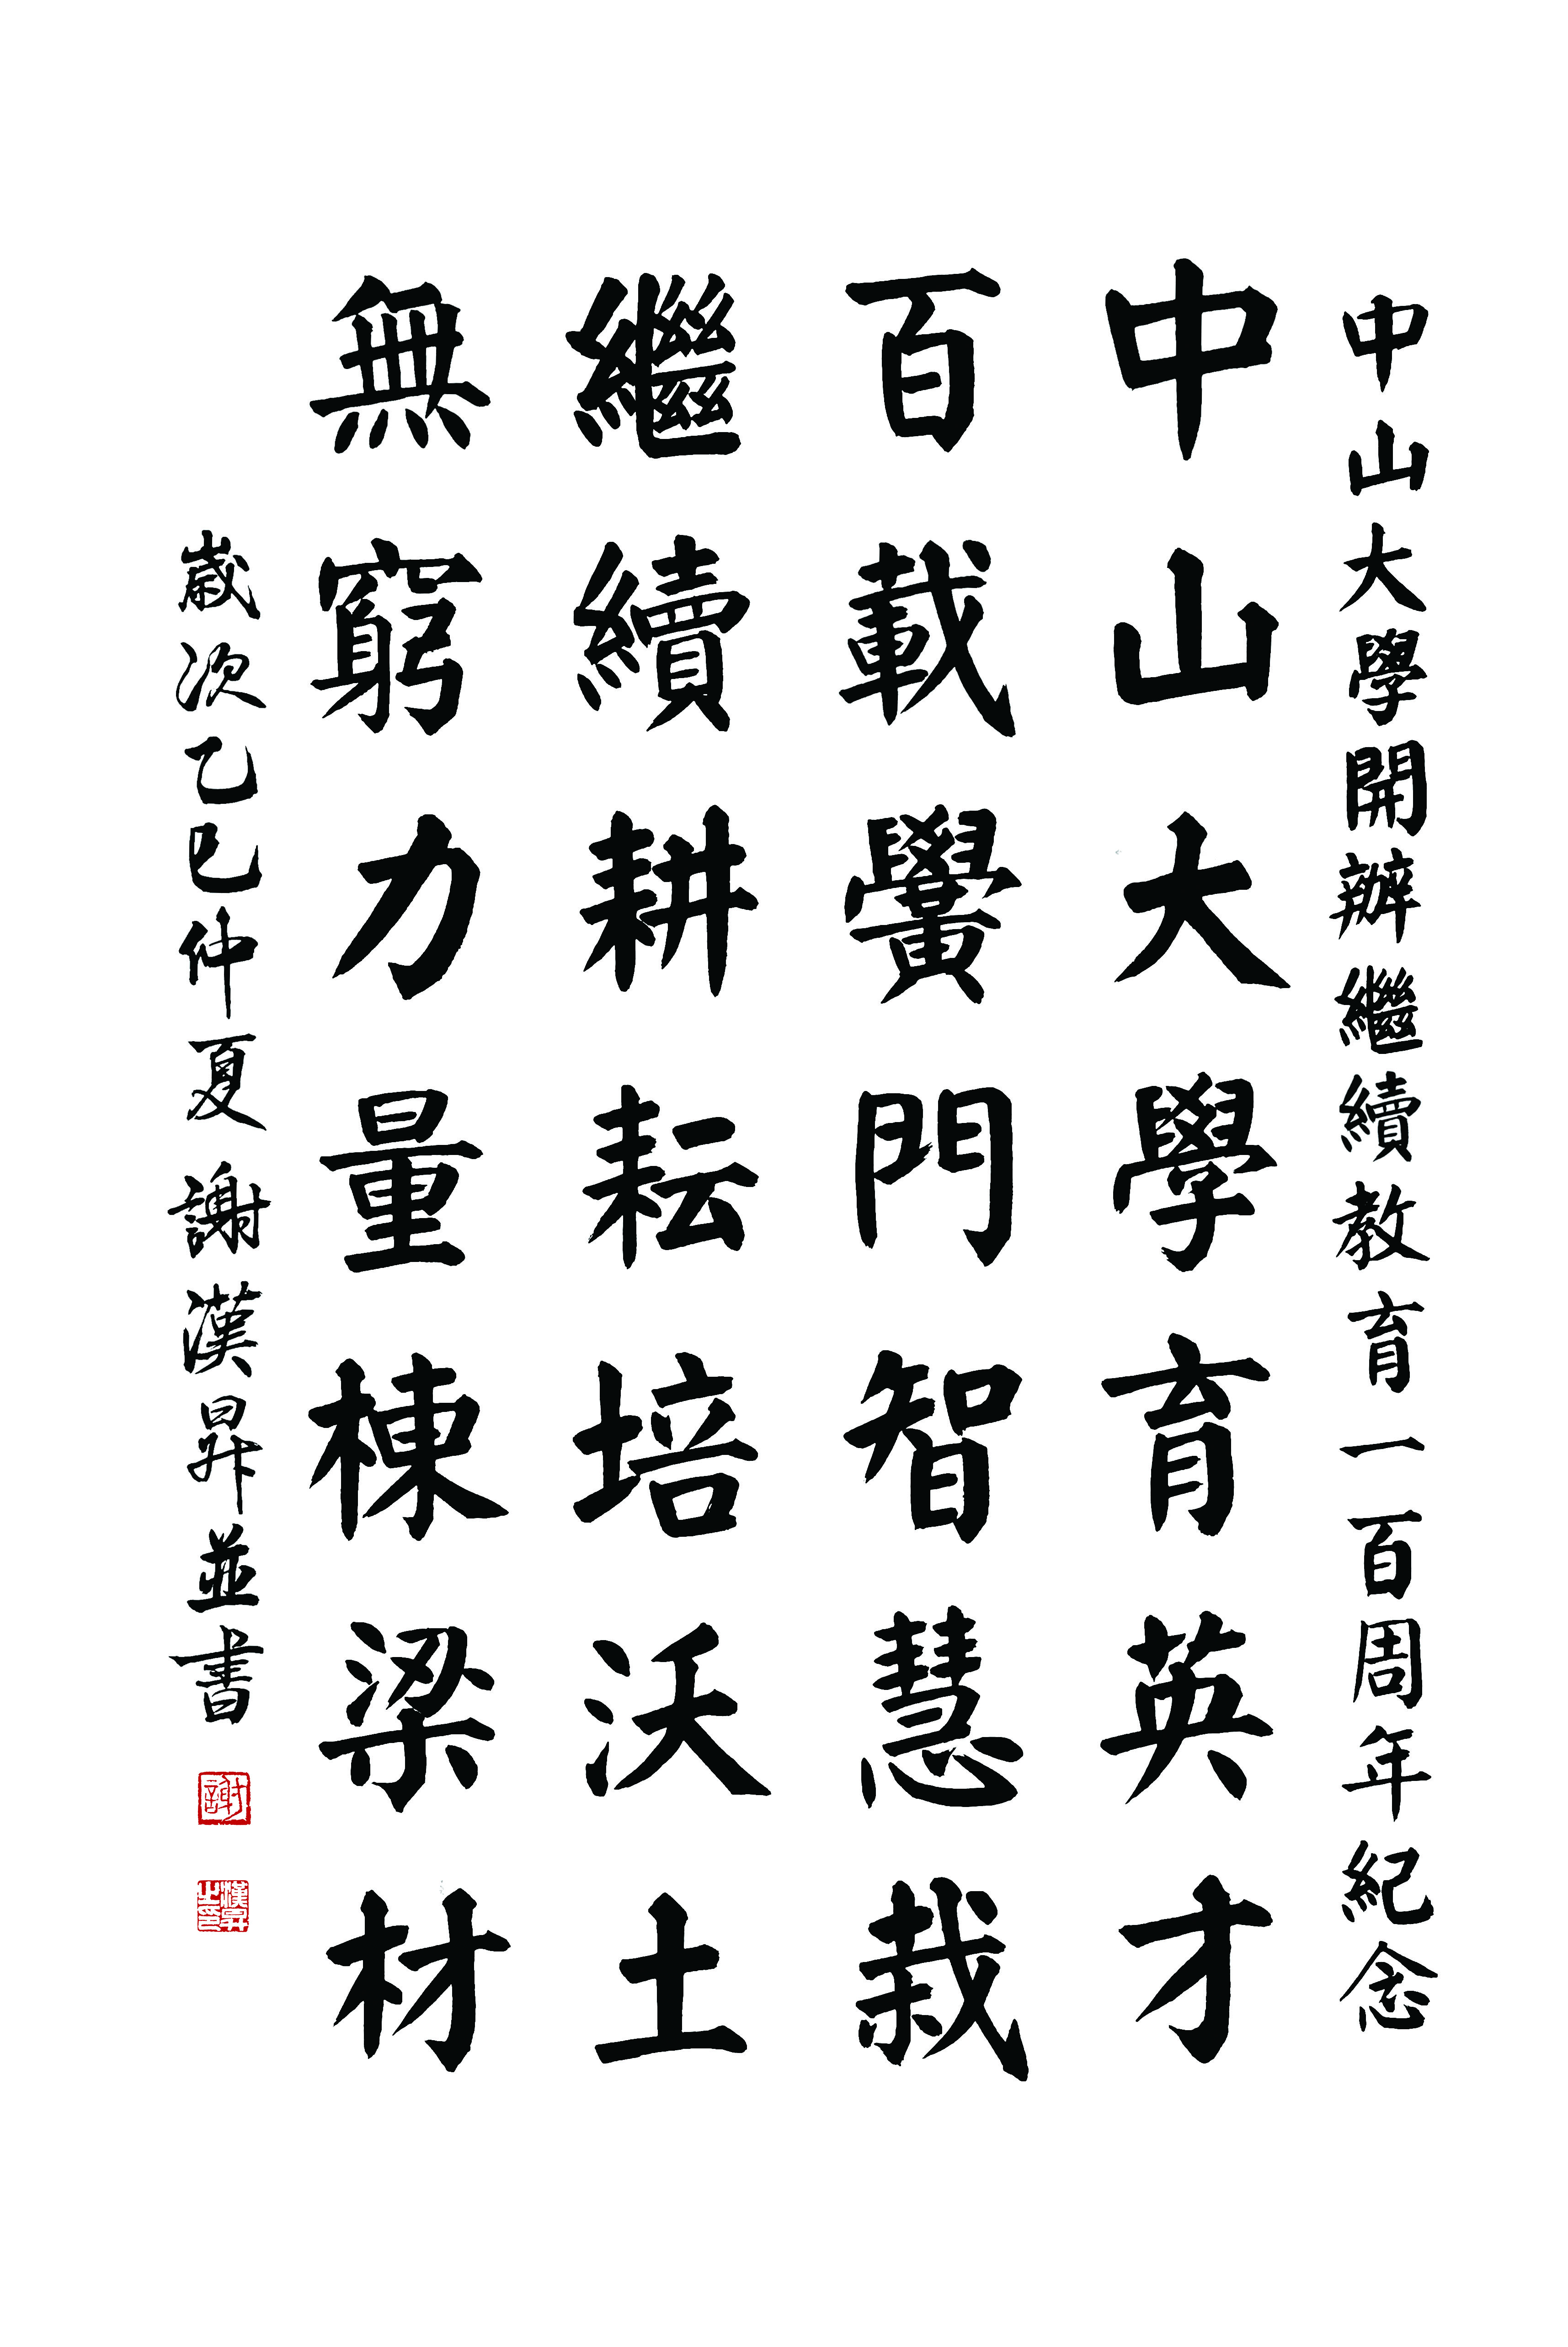 中山大學開辦繼續教育一百周年紀念
中山大學育英才
百載黌門智慧栽
繼續耕耘培沃土
無窮力量棟梁材
歲次乙巳仲夏謝漢昇並書
謝
漢昇之印